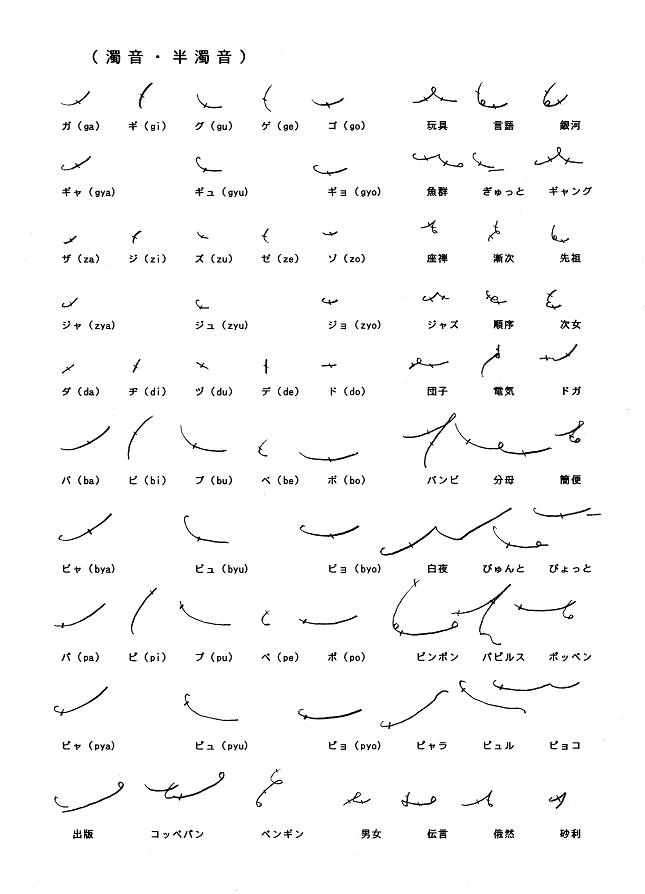 （濁音・半濁音）
ガ（ga） ギ（gi） グ（gu） ゲ（ge） ゴ（go） 玩具 言語 銀河
ギャ（gya） ギュ（gyu） ギョ（gyo） 魚群 ぎゅっと ギャング
ザ（za） ジ（zi） ズ（zu） ゼ（ze） ゾ（zo） 座禅 漸次 先祖
ジャ（zya） ジュ（zyu） ジョ（zyo） ジャズ 順序 次女
ダ（da） ヂ（di） ヅ（du） デ（de） ド（do） 団子 電気 ドガ
バ（ba） ビ（bi） ブ（bu） ベ（be） ボ（bo） バンビ 分母 簡便
ビャ（bya） ビュ（byu） ビョ（byo） 白夜 びゅんと ぴょっと
パ（pa） ピ（pi） プ（pu） ペ（pe） ポ（po） ピンポン パピルス ポッペン
ピャ（pya） ピュ（pyu） ピョ（pyo） ピャラ ピュル ピョコ
出版 コッペパン ペンギン 男女 伝言 俄然 砂利